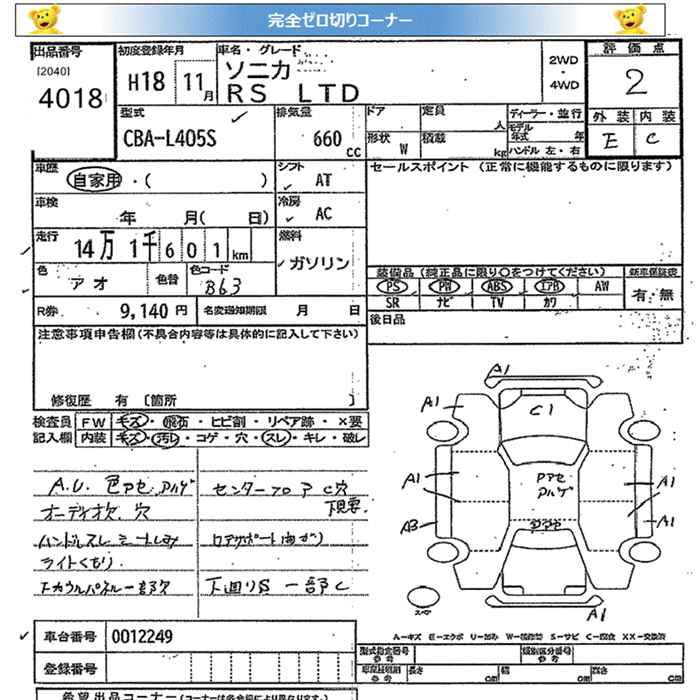 完全ゼロ切りコーナー
出品番号
[2040]
4018
初度登録年月
H18 11月
車名・グレード
ソニカ
RS LTD
2WD
・
4WD
評価点
2
外装 内装
E C
型式
CBA-L405S
排気量
660 cc
ドア
定員 人
形状 W
積載 kg
ディーラー・並行
モデル年式 年
ハンドル 左・右
車歴
自家用・( )
シフト
AT
車検
年 月( 日)
冷房
AC
走行
14万1千601km
燃料
ガソリン
色
アオ
色替
色コード
B63
R券 9,140円
名変通知期限 月 日
セールスポイント(正常に機能するものに限ります)
装備品(純正品に限り○をつけてください)
PS PW ABS エアB AW
SR ナビ TV カワ
新車保証書
有・無
後日品
注意事項申告欄(不具合内容等は具体的に記入して下さい)
修復歴 有〔箇所 〕
検査員記入欄
FW キズ・飛石・ヒビ割・リペア跡・×要
内装 キズ・汚レ・コゲ・穴・スレ・キレ・破レ
A.U. 色アセ ハゲ
オーディオ欠.穴
ハンドルスレ シート
ライトくもり
下カウルパネル一部欠
センターフロア C穴
下見要
下廻りS 一部C
A1
A1
C1
A1
A1
A1
Pアセ
Pハゲ
A3
A1
A1
スペア
A―キズ E―エクボ U―凹み W―補修跡 S―サビ C―腐食 XX―交換済
車台番号 0012249
登録番号
型式指定番号
参考
類別区分番号
参考
長さ cm 幅 cm 高さ cm
希望出品コーナー